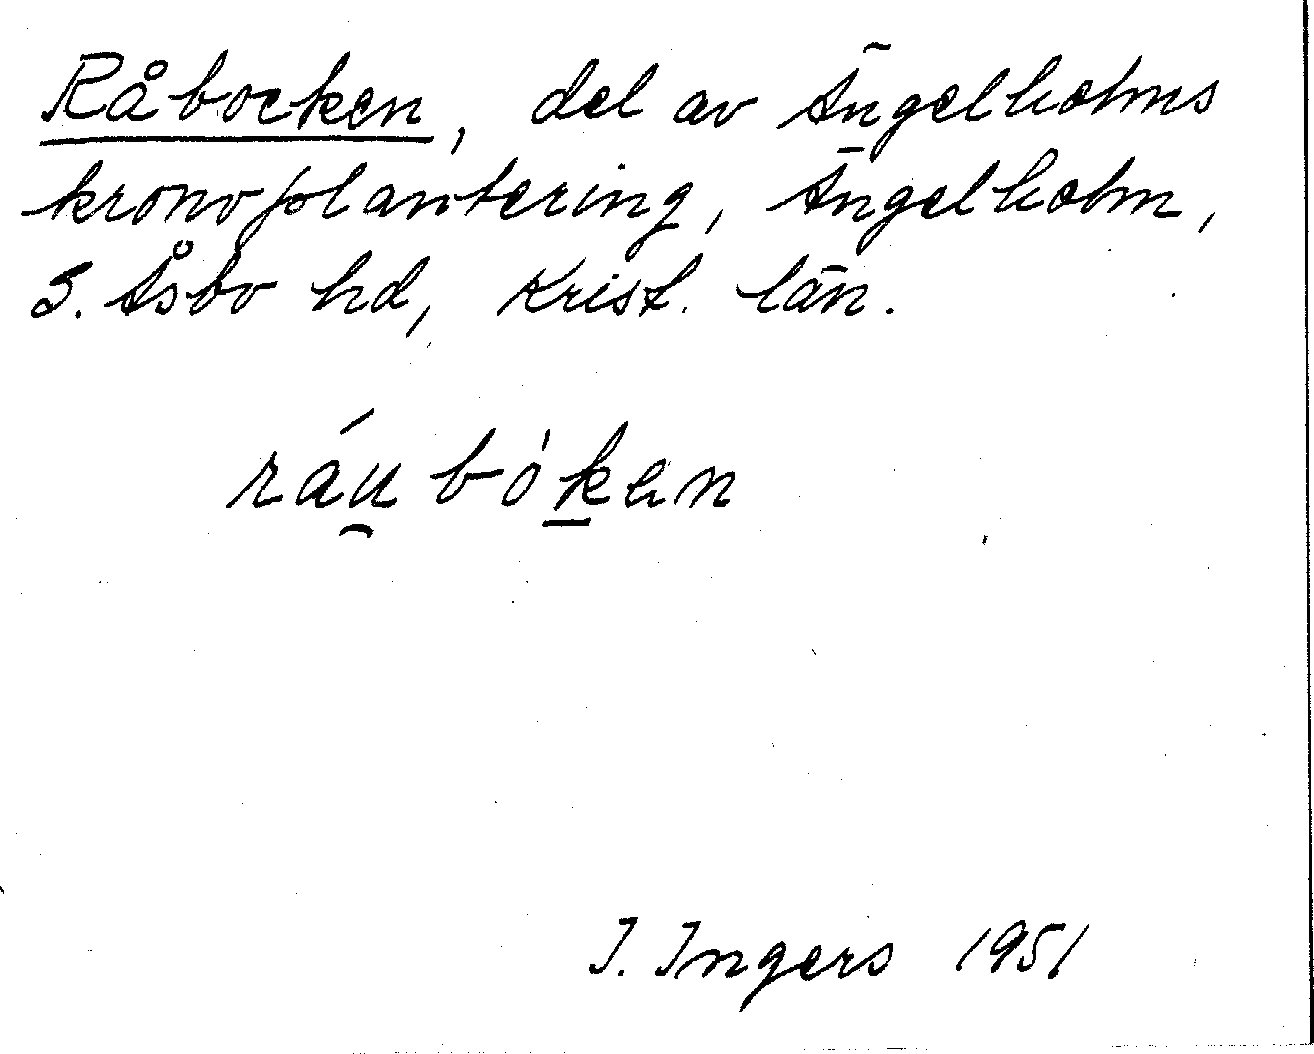 Råbocken, del av Ängelholms
kronoplantering, Ängelholm,
S. Åsbo hd, Krist. län.
ráu̯bòk̲en
I. Ingers 1951